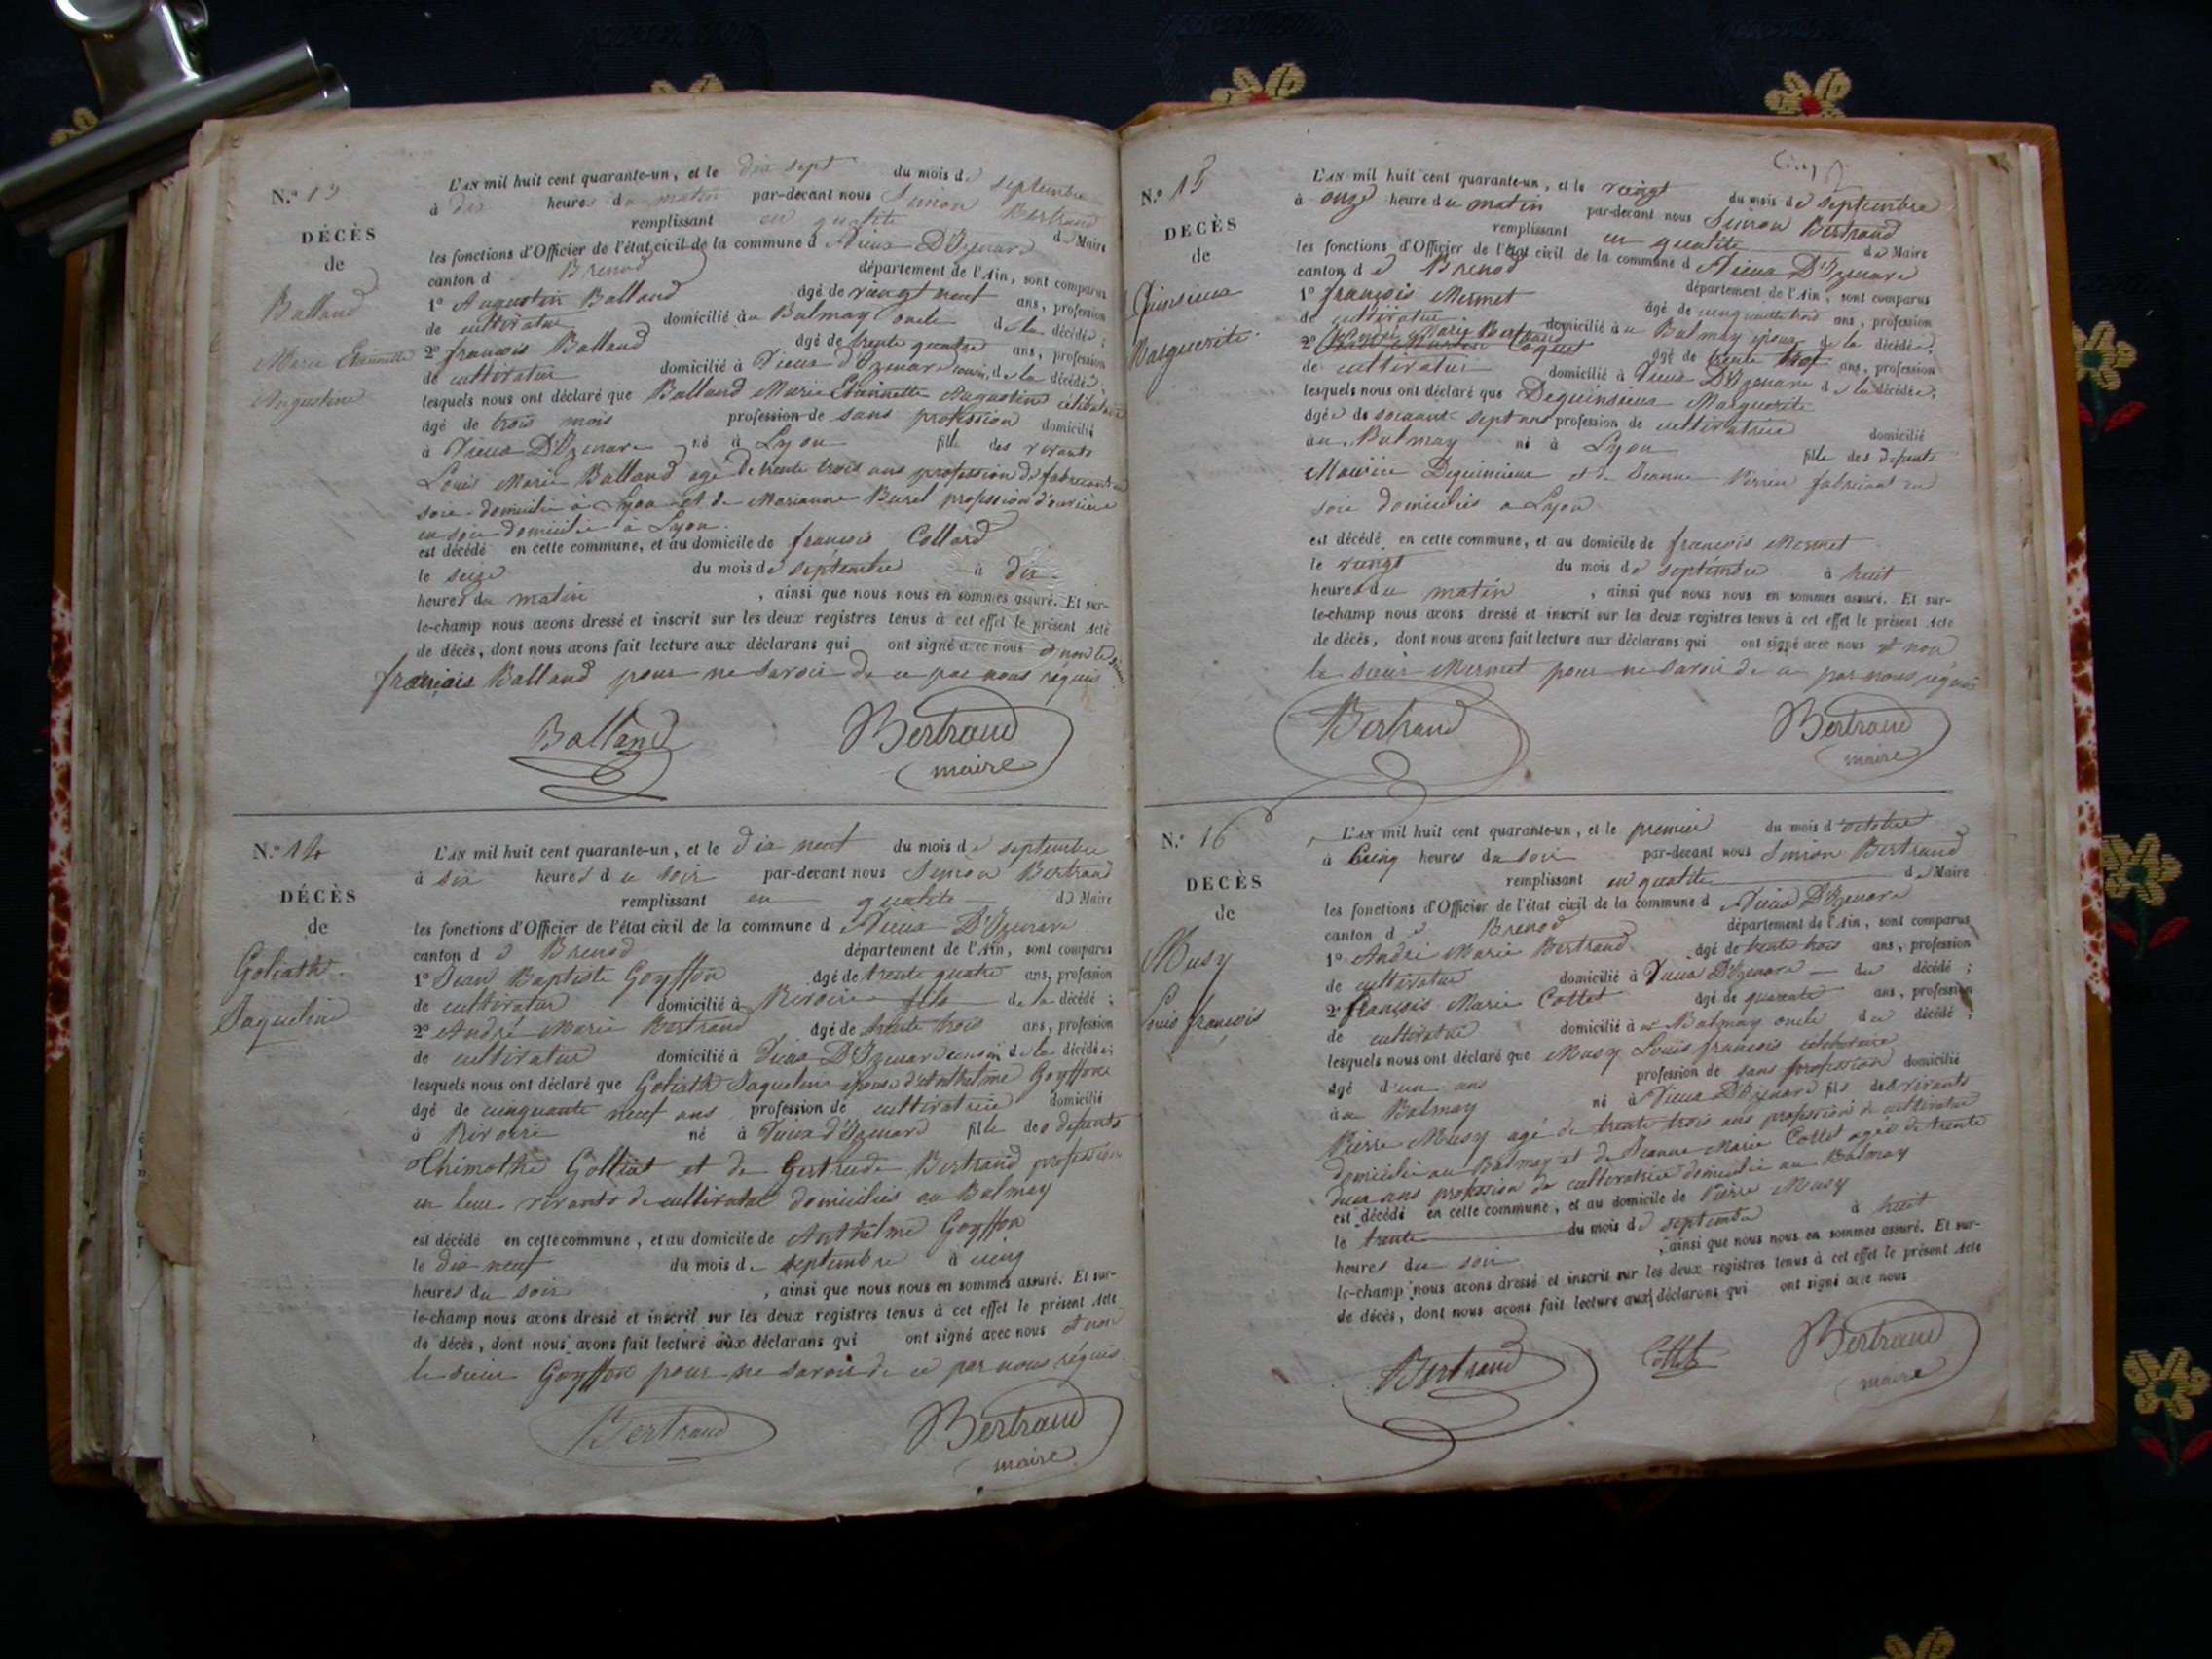 N.º 13
DÉCÈS
de
Balland
Marie Etiennette
Augustine
L'AN mil huit cent quarante-un, et le dix sept du mois de septembre
à dix heures du matin par-devant nous Simon Bertrand
remplissant en qualité de Maire
les fonctions d'Officier de l'état civil de la commune d Vieux D'Izenave
canton d Brenod département de l'Ain, sont comparus
1º Augustin Balland âgé de vingt neuf ans, profession
de cultivateur domicilié au Balmay oncle de la décédée;
2º françois Balland âgé de trente quatre ans, profession
de cultivateur domicilié à Vieux d'Izenave cousin, de la décédée;
lesquels nous ont déclaré que Balland Marie Etiennette Augustine célibataire
âgé de trois mois profession de sans profession domicilié
à Vieux D'Izenave né à Lyon fille des vivants
Louis Marie Balland agé de trente trois ans profession de fabricant en
soie domicilié à Lyon et de Marianne Burel profession d'ouvrière
en soie domicilié à Lyon.
est décédé en cette commune, et au domicile de françois Collard
le seize du mois de septembre à dix
heures du matin, ainsi que nous nous en sommes assuré. Et sur-
le-champ nous avons dressé et inscrit sur les deux registres tenus à cet effet le présent Acte
de décès, dont nous avons fait lecture aux déclarans qui ont signé avec nous et non le sieur
françois Balland pour ne savoir de ce par nous réquis
Balland Bertrand
maire
N.º 14
DÉCÈS
de
Goliath
Jaqueline
L'AN mil huit cent quarante-un, et le dix neuf du mois de septembre
à six heures du soir par-devant nous Simon Bertrand
remplissant en qualité de Maire
les fonctions d'Officier de l'état civil de la commune d Vieux D'Izenave
canton de Brenod département de l'Ain, sont comparus
1º Jean Baptiste Goyffon âgé de trente quatre ans, profession
de cultivateur domicilié à Rivoire fils de la décédé;
2º André Marie Bertrand âgé de trente trois ans, profession
de cultivateur domicilié à Vieux D'Izenave cousin de la décédée;
lesquels nous ont déclaré que Goliath Jaqueline épouse d'Anthelme Goyffon
âgé de cinquante neuf ans profession de cultivatrice domicilié
à Rivoire né à Vieux d'Izenave fille des défunts
Thimothé Golliat et de Gertrude Bertrand profession
en leur vivants de cultivateur domiciliés au Balmay
est décédé en cette commune, et au domicile de Anthelme Goyffon
le dix neuf du mois de septembre à cinq
heures du soir, ainsi que nous nous en sommes assuré. Et sur-
le-champ nous avons dressé et inscrit sur les deux registres tenus à cet effet le présent Acte
de décès, dont nous avons fait lecture aux déclarans qui ont signé avec nous et non
le sieur Goyffon pour ne savoir de ce par nous réquis
Bertrand Bertrand
maire
N.º 15
DECÈS
de
Marguerite
L'AN mil huit cent quarante-un, et le vingt du mois de septembre
à onze heure du matin par-devant nous Simon Bertrand
remplissant en qualité de Maire
les fonctions d'Officier de l'état civil de la commune d Vieux D'Izenave
canton de Brenod département de l'Ain, sont comparus
1º françois Mermet âgé de cinquante trois ans, profession
de cultivateur domicilié au Balmay époux de la décédée;
2º André Marie Bertrand âgé de trente trois ans, profession
de cultivateur domicilié à Vieux D'Izenave de la décédée;
lesquels nous ont déclaré que Dequinsieux Marguerite
âgée de soixante sept ans profession de cultivatrice domicilié
au Balmay né à Lyon fille des défunts
Maurice Dequinsieux et de Jeanne Perrier fabricant en
soie domiciliés a Lyon
est décédé en cette commune, et au domicile de françois Mermet
le vingt du mois de septembre à huit
heures du matin, ainsi que nous nous en sommes assuré. Et sur-
le-champ nous avons dressé et inscrit sur les deux registres tenus à cet effet le présent Acte
de décès, dont nous avons fait lecture aux déclarans qui ont signé avec nous et non
le sieur Mermet pour ne savoir de ce par nous réquis
Bertrand Bertrand
maire
N.º 16
DECÈS
de
Musy
Louis françois
L'AN mil huit cent quarante-un, et le premier du mois d'octobre
à Cinq heures du soir par-devant nous Simon Bertrand
remplissant en qualité de Maire
les fonctions d'Officier de l'état civil de la commune d Vieux D'Izenave
canton de Brenod département de l'Ain, sont comparus
1º André Marie Bertrand âgé de trente trois ans, profession
de cultivateur domicilié à Vieux D'Izenave du décédé;
2º françois Marie Collet âgé de quarante ans, profession
de cultivateur domicilié au Balmay oncle du décédé;
lesquels nous ont déclaré que Musy Louis françois célibataire
âgé d'un ans profession de sans profession domicilié
au Balmay né à Vieux D'Izenave fils des vivants
Pierre Musy agé de trente trois ans profession de cultivateur
domicilié au Balmay et de Jeanne Marie Collet agée de trente
deux ans profession de cultivatrice domicilié au Balmay
est décédé en cette commune, et au domicile de Pierre Musy
le trente du mois de septembre à huit
heures du soir, ainsi que nous nous en sommes assuré. Et sur-
le-champ nous avons dressé et inscrit sur les deux registres tenus à cet effet le présent Acte
de décès, dont nous avons fait lecture aux déclarans qui ont signé avec nous
Bertrand Collet Bertrand
maire